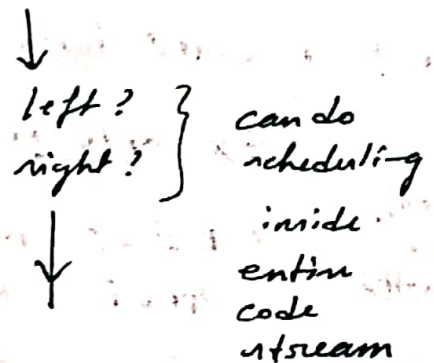 left?
right?
can do
scheduling
inside
entire
code
stream